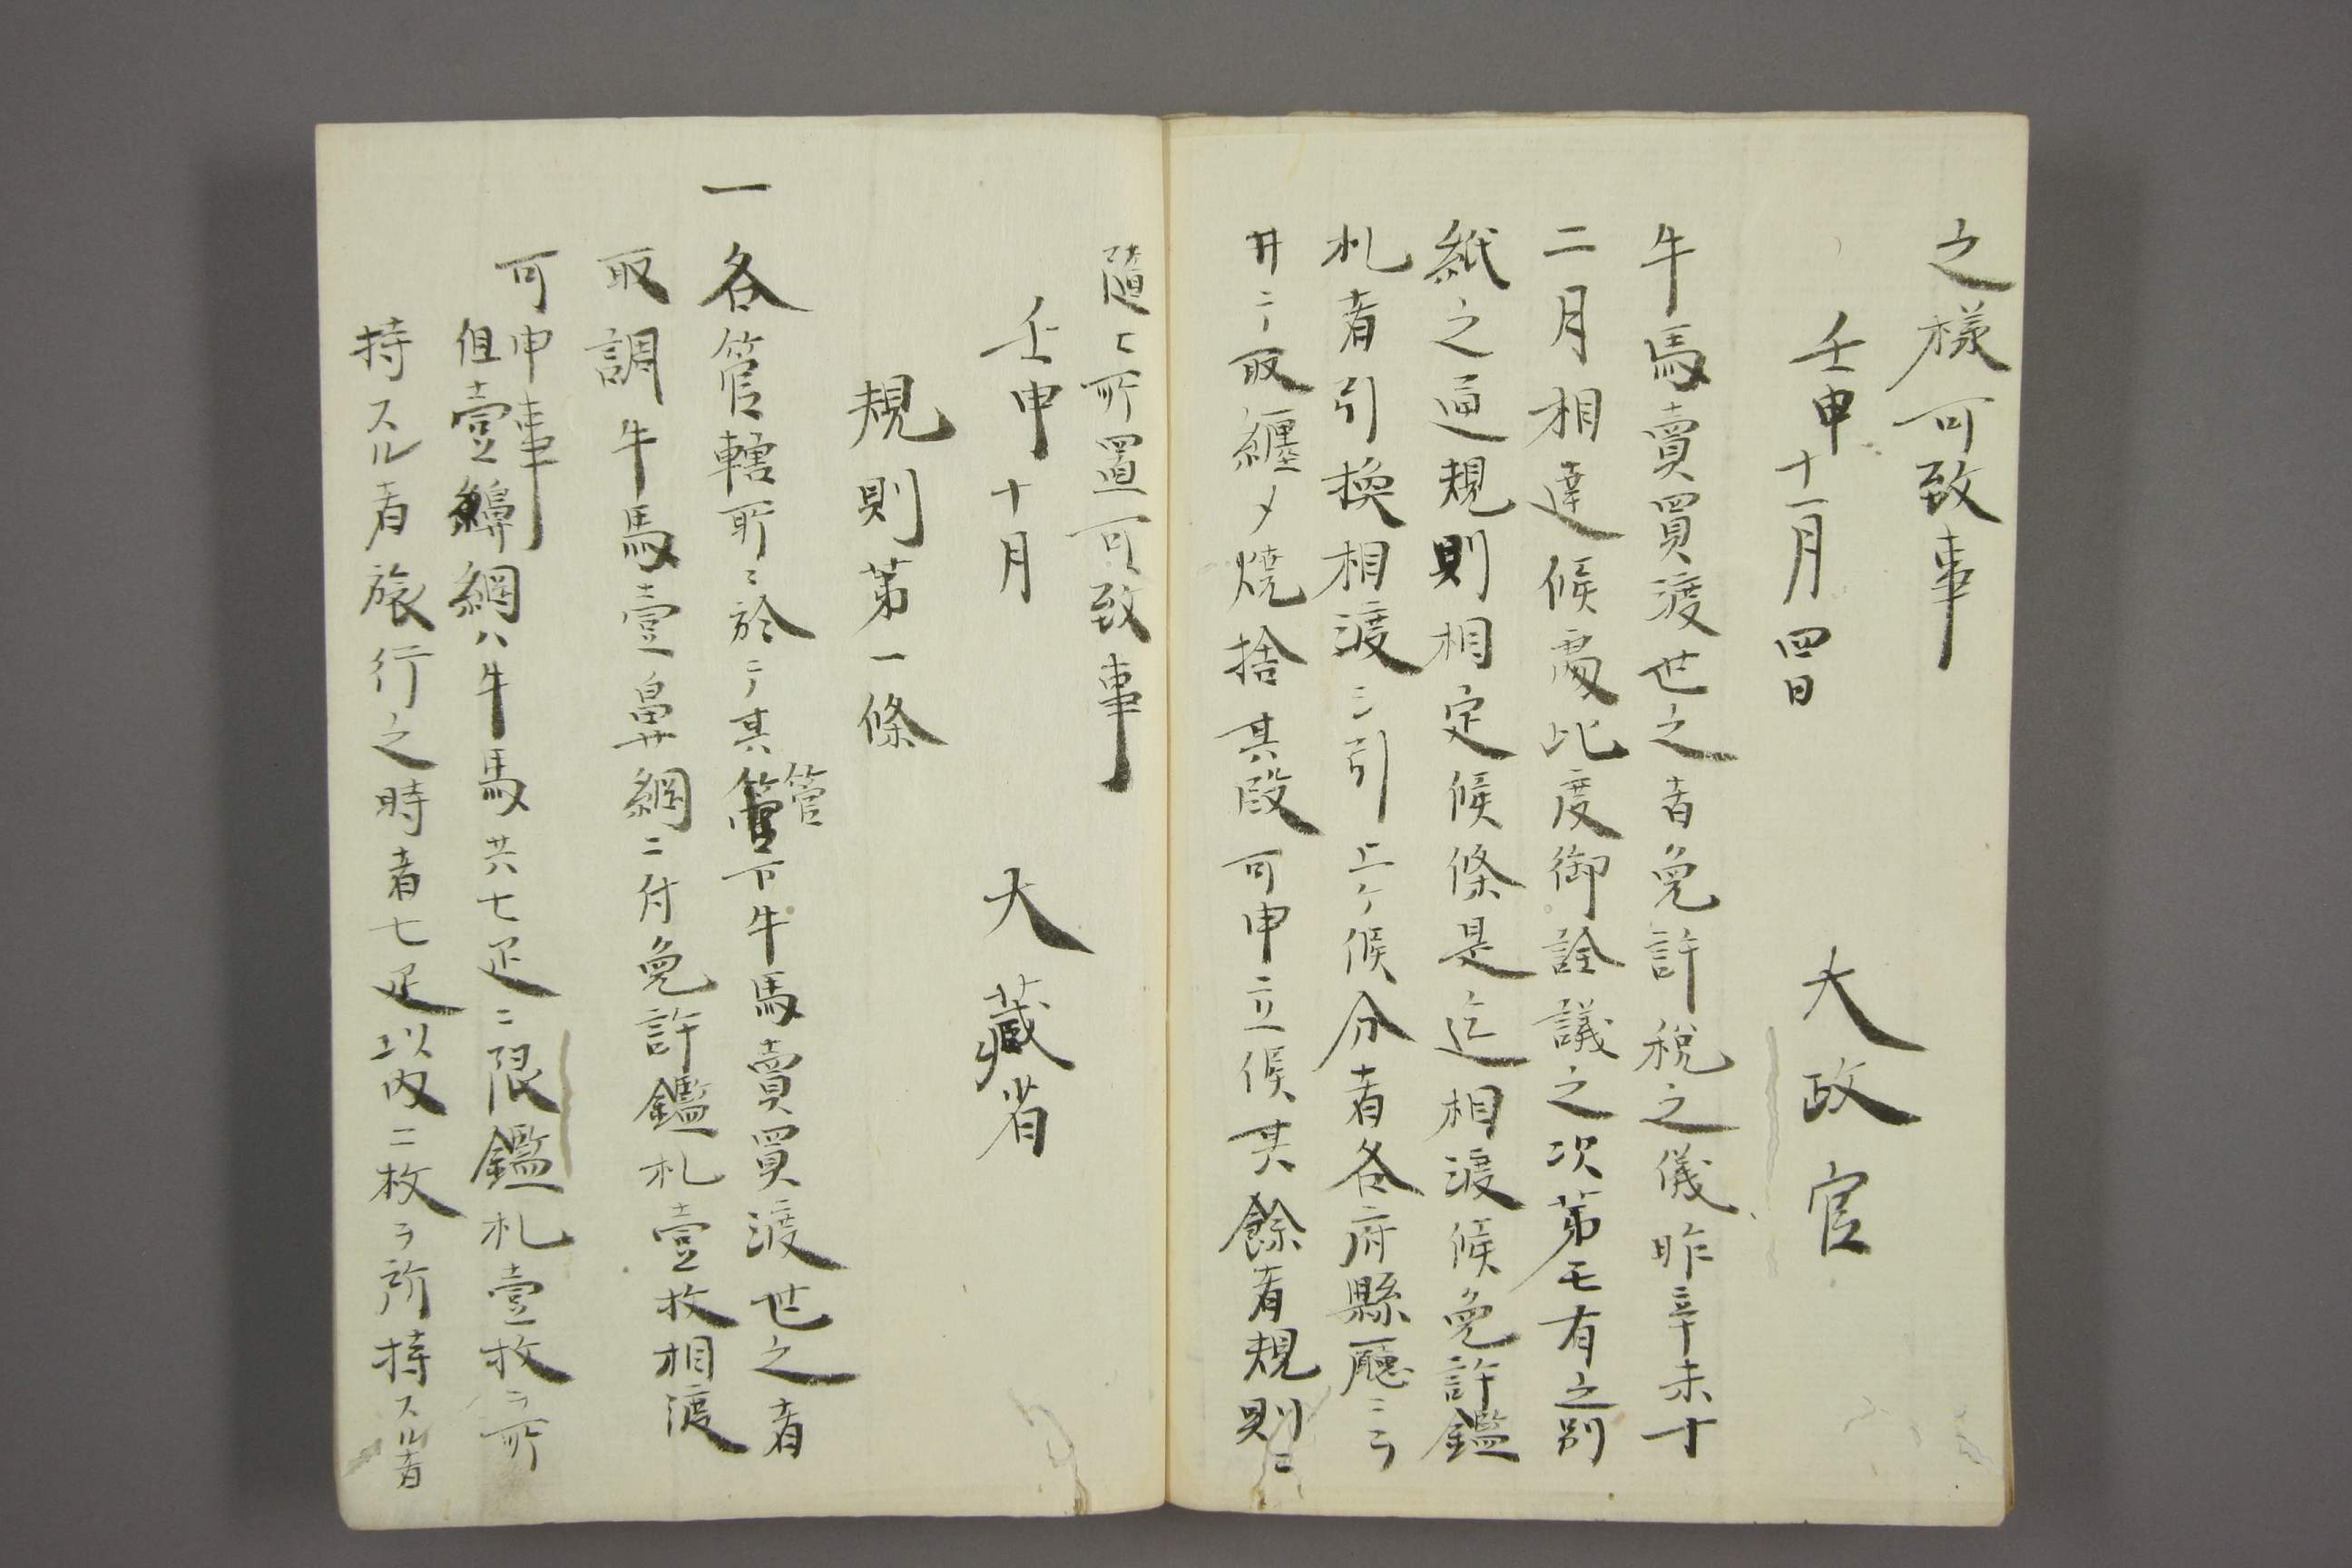 之様可致事
壬申十一月四日
大政官
牛馬賣買渡世之者免許税之儀昨辛未十
二月相達候處此度御詮議之次第モ有之別
紙之通規則相定候條是迄相渡候免許鑑
札者引換相渡シ引上ケ候分者各府縣廳ニテ
取纏メ焼捨其段可申立候其餘者規則ニ
随ヒ所置可致事
壬申十月
大藏省
規則第一條
一各管轄所ニ於テ其管下牛馬賣買渡世之者
管
取調牛馬壹鼻綱ニ付免許鑑札壹枚相渡
可申事
但壹鼻綱ハ牛馬共七疋ニ限鑑札壹枚ヲ所
持スル者旅行之時者七疋以内二枚ヲ所持スル者